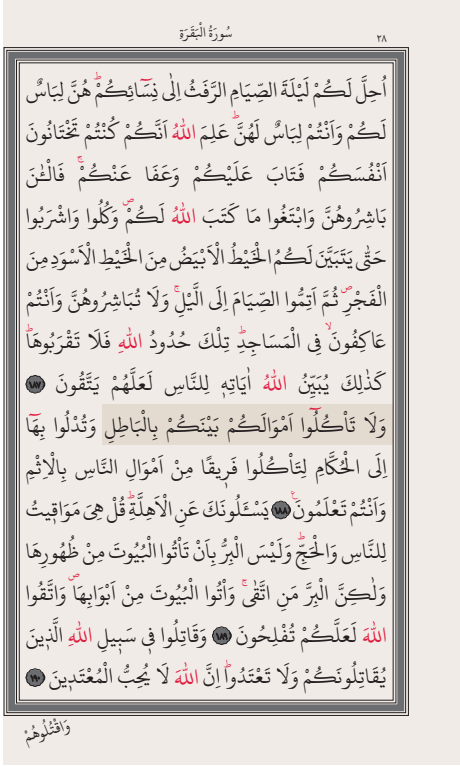 سُورَةُ الْبَقَرَةِ
٢٨
اُحِلَّ لَكُمْ لَيْلَةَ الصِّيَامِ الرَّفَثُ اِلٰى نِسَٓائِكُمْۜ هُنَّ لِبَاسٌ
لَكُمْ وَاَنْتُمْ لِبَاسٌ لَهُنَّۜ عَلِمَ اللّٰهُ اَنَّكُمْ كُنْتُمْ تَخْتَانُونَ
اَنْفُسَكُمْ فَتَابَ عَلَيْكُمْ وَعَفَا عَنْكُمْۚ فَالْـٰٔنَ
بَاشِرُوهُنَّ وَابْتَغُوا مَا كَتَبَ اللّٰهُ لَكُمْۖ وَكُلُوا وَاشْرَبُوا
حَتّٰى يَتَبَيَّنَ لَكُمُ الْخَيْطُ الْاَبْيَضُ مِنَ الْخَيْطِ الْاَسْوَدِ مِنَ
الْفَجْرِۖ ثُمَّ اَتِمُّوا الصِّيَامَ اِلَى الَّيْلِۚ وَلَا تُبَاشِرُوهُنَّ وَاَنْتُمْ
عَاكِفُونَۙ فِى الْمَسَاجِدِۜ تِلْكَ حُدُودُ اللّٰهِ فَلَا تَقْرَبُوهَاۜ
كَذٰلِكَ يُبَيِّنُ اللّٰهُ اٰيَاتِه۪ لِلنَّاسِ لَعَلَّهُمْ يَتَّقُونَ ١٨٧
وَلَا تَأْكُلُٓوا اَمْوَالَكُمْ بَيْنَكُمْ بِالْبَاطِلِ وَتُدْلُوا بِهَٓا
اِلَى الْحُكَّامِ لِتَأْكُلُوا فَر۪يقًا مِنْ اَمْوَالِ النَّاسِ بِالْاِثْمِ
وَاَنْتُمْ تَعْلَمُونَ۟ ١٨٨ يَسْـَٔلُونَكَ عَنِ الْاَهِلَّةِۜ قُلْ هِىَ مَوَاق۪يتُ
لِلنَّاسِ وَالْحَجِّۜ وَلَيْسَ الْبِرُّ بِاَنْ تَأْتُوا الْبُيُوتَ مِنْ ظُهُورِهَا
وَلٰكِنَّ الْبِرَّ مَنِ اتَّقٰىۚ وَأْتُوا الْبُيُوتَ مِنْ اَبْوَابِهَاۖ وَاتَّقُوا
اللّٰهَ لَعَلَّكُمْ تُفْلِحُونَ ١٨٩ وَقَاتِلُوا ف۪ى سَب۪يلِ اللّٰهِ الَّذ۪ينَ
يُقَاتِلُونَكُمْ وَلَا تَعْتَدُواۜ اِنَّ اللّٰهَ لَا يُحِبُّ الْمُعْتَد۪ينَ ١٩٠
وَاقْتُلُوهُمْ